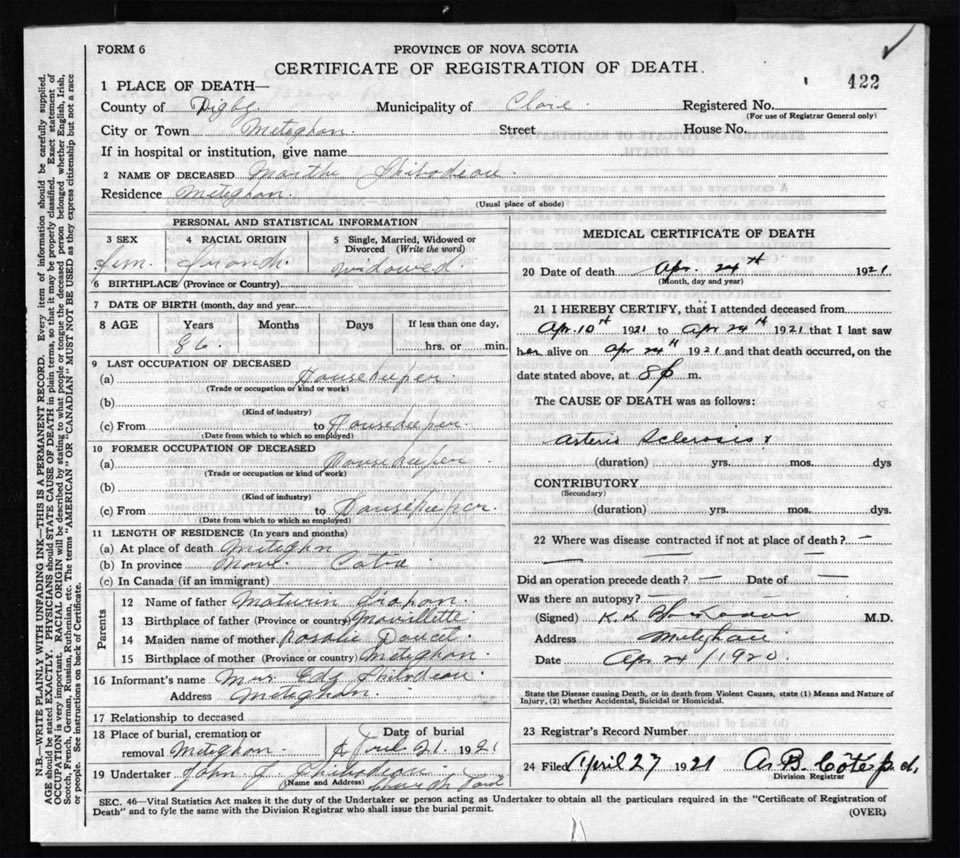 FORM 6
PROVINCE OF NOVA SCOTIA
CERTIFICATE OF REGISTRATION OF DEATH.
422
1 PLACE OF DEATH—
County of Digby Municipality of Clare Registered No.
(For use of Registrar General only)
City or Town Meteghan. Street House No.
If in hospital or institution, give name
2 NAME OF DECEASED Marthe Thibodeau
Residence Meteghan.
(Usual place of abode)
PERSONAL AND STATISTICAL INFORMATION
3 SEX 4 RACIAL ORIGIN 5 Single, Married, Widowed or Divorced (Write the word)
Fem. French widowed.
6 BIRTHPLACE (Province or Country)
7 DATE OF BIRTH (month, day and year.
8 AGE Years Months Days If less than one day,
86. hrs. or min.
9 LAST OCCUPATION OF DECEASED
(a) Housekeeper.
(Trade or occupation or kind or work)
(b)
(Kind of industry)
(c) From to Housekeeper.
(Date from which to which so employed)
10 FORMER OCCUPATION OF DECEASED
(a) Housekeeper
(Trade or occupation or kind of work)
(b)
(Kind of industry)
(c) From to Housekeeper.
(Date from which to which so employed)
11 LENGTH OF RESIDENCE (In years and months)
(a) At place of death Meteghn
(b) In province Nove Cotia
(c) In Canada (if an immigrant)
Parents
12 Name of father Maturin
13 Birthplace of father (Province or country) Mavillette
14 Maiden name of mother. Rosalie Doucet
15 Birthplace of mother (Province or country) Meteghan.
16 Informant's name Thibodeau
Address Meteghan.
17 Relationship to deceased
18 Place of burial, cremation or Date of burial
removal Meteghan. April 21. 1921
19 Undertaker John Thibodeau
(Name and Address)
MEDICAL CERTIFICATE OF DEATH
20 Date of death Apr. 24th 1921
(Month, day and year)
21 I HEREBY CERTIFY, that I attended deceased from
Apr. 10th 1921 to Apr 24th 1921 that I last saw
her alive on Apr 24th 1921 and that death occurred, on the
date stated above, at 8p m.
The CAUSE OF DEATH was as follows:
Arterio Sclerosis
(duration) yrs. mos. dys
CONTRIBUTORY
(Secondary)
(duration) yrs. mos. dys.
22 Where was disease contracted if not at place of death? —
— — —
Did an operation precede death? — Date of —
Was there an autopsy? —
(Signed) M.D.
Address Meteghan
Date Apr 24 / 1920.
State the Disease causing Death, or in death from Violent Causes, state (1) Means and Nature of
Injury, (2) whether Accidental, Suicidal or Homicidal.
23 Registrar's Record Number
24 Filed April 27 1921 B. Côte p.d.
Division Registrar
SEC. 46—Vital Statistics Act makes it the duty of the Undertaker or person acting as Undertaker to obtain all the particulars required in the "Certificate of Registration of
Death" and to fyle the same with the Division Registrar who shall issue the burial permit.
(OVER)
N.B.—WRITE PLAINLY WITH UNFADING INK—THIS IS A PERMANENT RECORD. Every item of information should be carefully supplied.
AGE should be stated EXACTLY. PHYSICIANS should STATE CAUSE OF DEATH in plain terms, so that it may be properly classified. Exact statement of
OCCUPATION is very important. RACIAL ORIGIN will be described by stating to what people or tongue the deceased person belonged whether English, Irish,
Scotch, French, German, Russian, Ruthenian, etc. The terms "AMERICAN" OR "CANADIAN" MUST NOT BE USED as they express citizenship but not a race
or people. See instructions on back of Certificate.